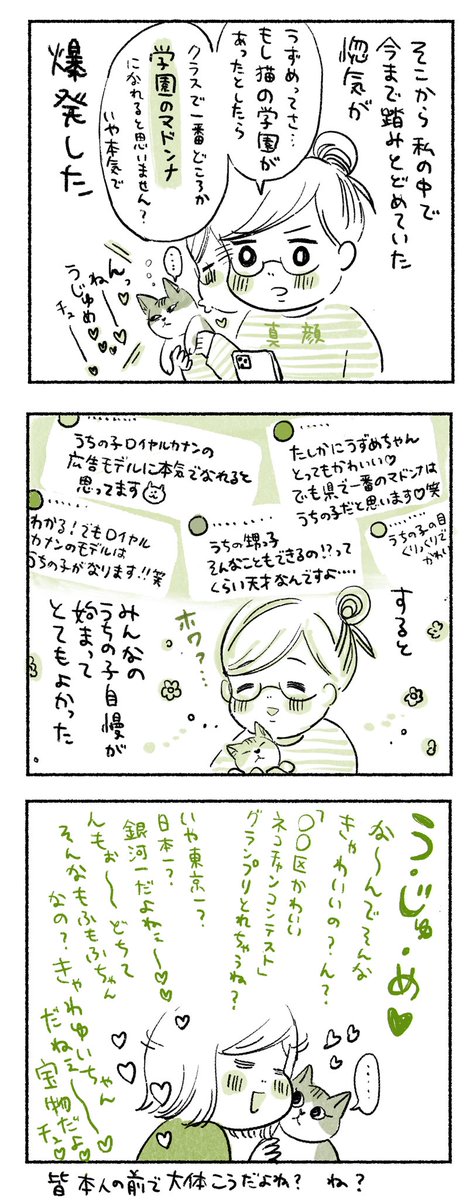 そこから私の中で
今まで踏みとどめていた
惚気が
爆発した
うずめってさ…
もし猫の学園が
あったとしたら
クラスで一番どころか
学園のマドンナ
になれると思いません？
いや本気で
真顔
…
ねんっ
うじゅめ
チュ
うちの子ロイヤルカナンの
広告モデルに本気でなれると
思ってます
たしかにうずめちゃん
とってもかわいい♡
でも県で一番のマドンナは
うちの子だと思います♡笑
わかる！でもロイヤル
カナンのモデルは
うちの子がなります!!笑
うちの甥っ子
そんなこともできるの!?って
くらい天才なんですよ…
うちの子の目
くりくりで
かわい
すると
ホワァ…
みんなの
うちの子自慢が
始まって
とてもよかった
う・じゅ・め♥
な〜んでそんな
きゃわいいの？ん？
「〇〇区かわいい
ネコチャンコンテスト」
グランプリとれちゃうね？
いや東京一？
日本一？
銀河一だよねぇ〜♥
んもぉ〜どちて
そんなもふもふちゃん
なの？きゃわゆいちゃん
だねぇ〜
宝物だよ
チュ♥
…
皆本人の前で大体こうだよね？ ね？